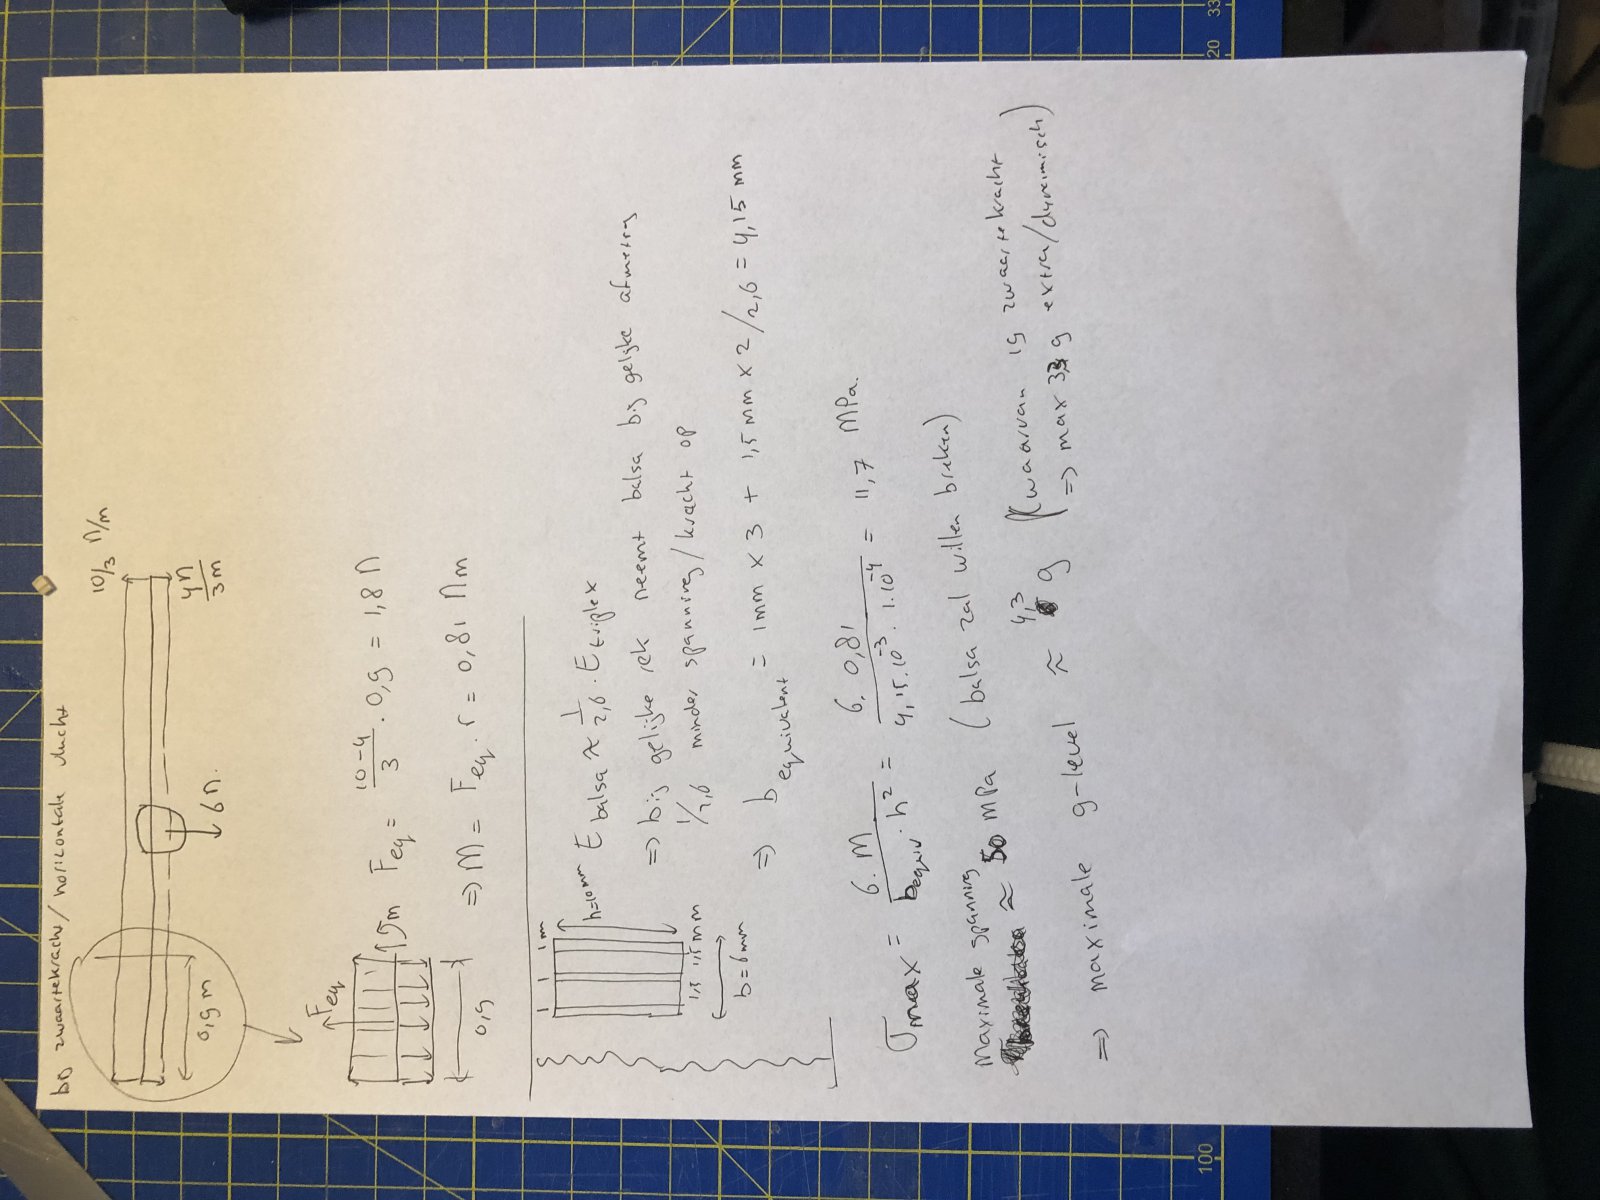 bo zwaartekracht / horizontale vlucht
10/3 N/m
4N
3m
0,9 m
6N.
Feq
0,9
Feq = 10-4/3 . 0,9 = 1,8 N
=> M = Feq . r = 0,81 Nm
1 1 1 mm
h=10mm
1,5 1,5 mm
b=6mm
E balsa ≈ 1/2,6 . E triplex
=> bij gelijke rek neemt balsa bij gelijke afmeting
1/2,6 minder spanning / kracht op
=> b equivalent = 1mm x 3 + 1,5 mm x 2 / 2,6 = 4,15 mm
σmax = 6. M / bequiv . h² = 6. 0,81 / 4,15.10⁻³ . 1.10⁻⁴ = 11,7 MPa.
maximale spanning
≈ 50 MPa (balsa zal willen breken)
=> maximale g-level ≈ 4,3 g (waarvan 1g zwaartekracht
=> max 3,3 g extra/dynamisch)
33
20
100